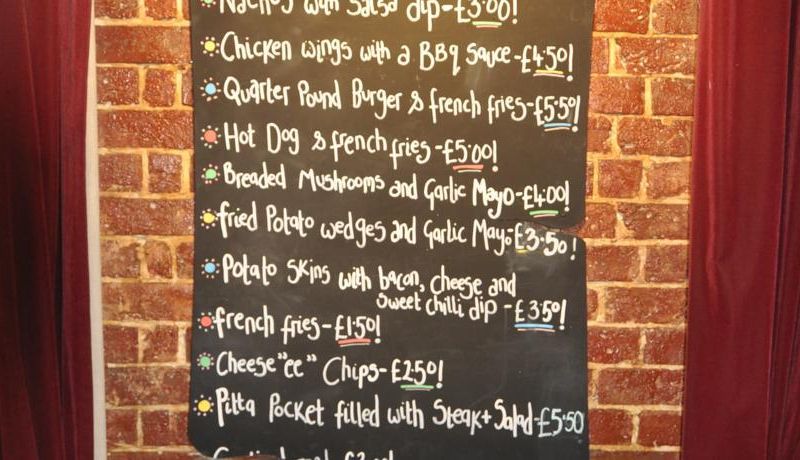 Nachos with Salsa dip-£3.00!
Chicken wings with a BBq Sauce-£4.50!
Quarter Pound Burger & french fries-£5.50!
Hot Dog & french fries-£5.00!
Breaded Mushrooms and Garlic Mayo-£4.00!
fried Potato wedges and Garlic Mayo-£3.50!
Potato Skins with bacon, cheese and
Sweet chilli dip-£3.50!
french fries-£1.50!
Cheese "ee" Chips-£2.50!
Pitta Pocket filled with Steak+Salad-£5.50